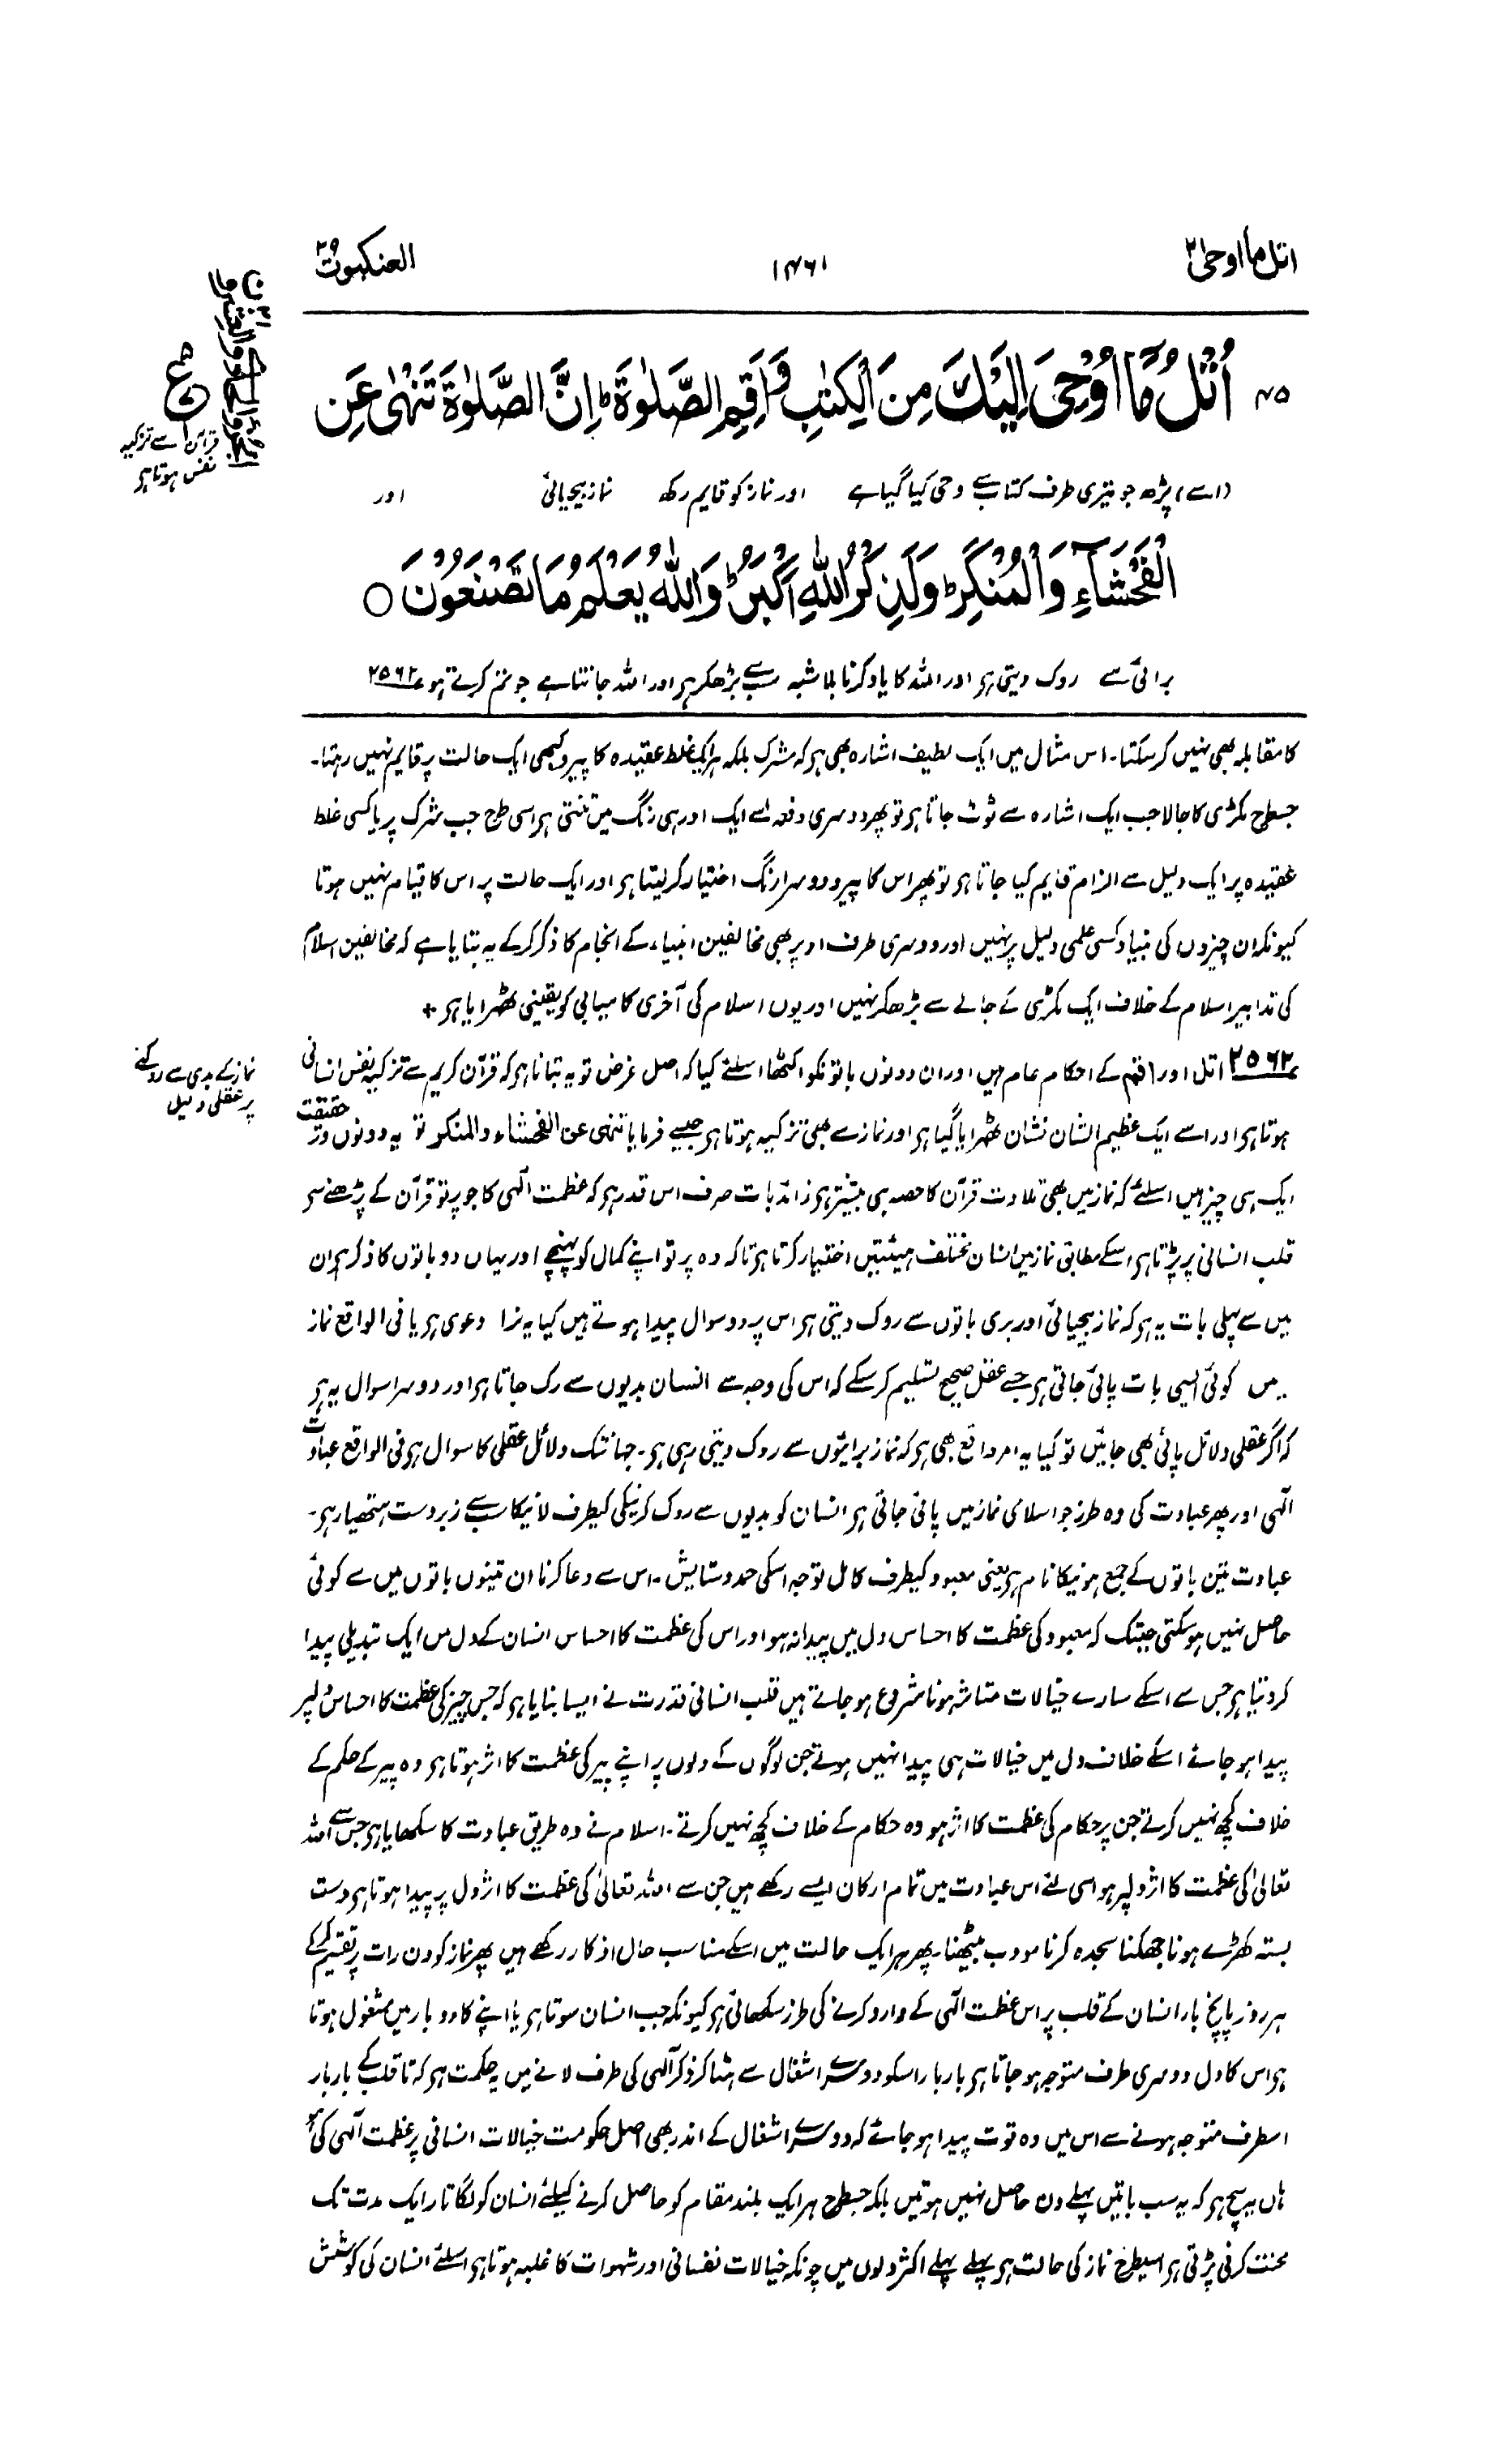 اتل ما اوحی ۲۱
۱۴۶۱
العنکبوت ۲۹
۴۵ اُتْلُ مَآ اُوْحِیَ اِلَیْكَ مِنَ الْكِتٰبِ وَ اَقِمِ الصَّلٰوةَ ؕ اِنَّ الصَّلٰوةَ تَنْهٰی عَنِ
(اسے) پڑھ جو تیری طرف کتاب سے وحی کیا گیا ہے اور نماز کو قایم رکھ نماز بیحیائی اور
الْفَحْشَآءِ وَالْمُنْكَرِ ؕ وَلَذِكْرُ اللّٰهِ اَكْبَرُ ؕ وَاللّٰهُ یَعْلَمُ مَا تَصْنَعُوْنَ ○
برائی سے روک دیتی ہر اور اللہ کا یاد کرنا بلا شبہ سب سے بڑھکر ہر اور اللہ جانتا ہے جو تم کرتے ہو ۲۵۶۲
ع
قرآن سے تزکیہ
نفس ہوتا ہر
کا مقابلہ بھی نہیں کر سکتا۔ اس مثال میں ایک لطیف اشارہ بھی ہر کہ مشرک بلکہ ہر ایک غلط عقیدہ کا پیرو کبھی ایک حالت پر قایم نہیں رہتا۔
جسطرح مکڑی کا جالا جب ایک اشارہ سے ٹوٹ جاتا ہر تو پھر دوسری دفعہ اسے ایک اور ہی رنگ میں تنتی ہر اسی طرح جب شرک پر یا کسی غلط
عقیدہ پر ایک دلیل سے الزام قایم کیا جاتا ہر تو پھر اس کا پیرو دوسرا رنگ اختیار کر لیتا ہر اور ایک حالت پر اس کا قیام نہیں ہوتا
کیونکہ ان چیزوں کی بنیاد کسی علمی دلیل پر نہیں اور دوسری طرف اوپر بھی مخالفین انبیاء کے انجام کا ذکر کر کے یہ بتایا ہے کہ مخالفین اسلام
کی تدابیر اسلام کے خلاف ایک مکڑی کے جالے سے بڑھکر نہیں اور یوں اسلام کی آخری کامیابی کو یقینی ٹھہرایا ہر +
۲۵۶۲ اتل اور اقم کے احکام عام ہیں اور ان دونوں باتونکو اکٹھا اسلئے کیا کہ اصل غرض تو یہ بتانا ہر کہ قرآن کریم سے تزکیہ نفس انسانی
نماز کے بدی سے روکنے
پر عقلی دلیل
ہوتا ہر اور اسے ایک عظیم الشان نشان ٹھہرایا گیا ہر اور نماز سے بھی تزکیہ ہوتا ہر جیسے فرمایا تنهى عن الفحشاء والمنكر تو یہ دونوں در حقیقت
ایک ہی چیز ہیں اسلئے کہ نماز میں بھی تلاوت قرآن کا حصہ ہی بیشتر ہر زائد بات صرف اس قدر ہر کہ عظمت الٰہی کا جو پرتو قرآن کے پڑھنے سے
قلب انسانی پر پڑتا ہر اسکے مطابق نماز میں انسان مختلف ہیئتیں اختیار کرتا ہر تا کہ وہ پرتو اپنے کمال کو پہنچے اور یہاں دو باتوں کا ذکر ہر ان
میں سے پہلی بات یہ ہر کہ نماز بیحیائی اور بری باتوں سے روک دیتی ہر اس پر دو سوال پیدا ہوتے ہیں کیا یہ نرا دعوی ہر یا فی الواقع نماز
میں کوئی ایسی بات پائی جاتی ہر جسے عقل صحیح تسلیم کر سکے کہ اس کی وجہ سے انسان بدیوں سے رک جاتا ہر اور دوسرا سوال یہ ہر
کہ اگر عقلی دلائل پائی بھی جائیں تو کیا یہ امر واقع بھی ہر کہ نماز برائیوں سے روک دیتی رہی ہر۔ جہانتک دلائل عقلی کا سوال ہر فی الواقع عبادت
الٰہی اور پھر عبادت کی وہ طرز جو اسلامی نماز میں پائی جاتی ہر انسان کو بدیوں سے روک کر نیکی کیطرف لانیکا سب سے زبردست ہتھیار ہر۔
عبادت تین باتوں کے جمع ہونیکا نام ہر یعنی معبود کیطرف کامل توجہ اسکی حمد و ستایش۔ اس سے دعا کرنا ان تینوں باتوں میں سے کوئی
حاصل نہیں ہو سکتی جبتک کہ معبود کی عظمت کا احساس دل میں پیدا نہ ہو اور اس کی عظمت کا احساس انسان کے دل میں ایک تبدیلی پیدا
کر دیتا ہر جس سے اسکے سارے خیالات متاثر ہونا شروع ہو جاتے ہیں قلب انسانی قدرت نے ایسا بنایا ہر کہ جس چیز کی عظمت کا احساس دلپر
پیدا ہو جائے اسکے خلاف دل میں خیالات ہی پیدا نہیں ہوتے جن لوگوں کے دلوں پر اپنے پیر کی عظمت کا اثر ہوتا ہر وہ پیر کے حکم کے
خلاف کچھ نہیں کرتے جن پر حکام کی عظمت کا اثر ہو وہ حکام کے خلاف کچھ نہیں کرتے۔ اسلام نے وہ طریق عبادت کا سکھایا ہر جس سے اللہ
تعالیٰ کی عظمت کا اثر دلپر ہو اسی لئے اس عبادت میں تمام ارکان ایسے رکھے ہیں جن سے اللہ تعالیٰ کی عظمت کا اثر دل پر پیدا ہوتا ہر دست
بستہ کھڑے ہونا جھکنا سجدہ کرنا مودب بیٹھنا۔ پھر ہر ایک حالت میں اسکے مناسب حال اذکار رکھے ہیں پھر نماز کو دن رات پر تقسیم کر کے
ہر روز پانچ بار انسان کے قلب پر اس عظمت الٰہی کے وارد کرنے کی طرز سکھائی ہر کیونکہ جب انسان سوتا ہر یا اپنے کاروبار میں مشغول ہوتا
ہر اس کا دل دوسری طرف متوجہ ہو جاتا ہر بار بار اسکو دوسرے اشغال سے ہٹا کر ذکر الٰہی کی طرف لانے میں یہ حکمت ہر کہ تا قلب کے بار بار
اسطرف متوجہ ہونے سے اس میں وہ قوت پیدا ہو جائے کہ دوسرے اشغال کے اندر بھی اصل حکومت خیالات انسانی پر عظمت الٰہی کی ہو
ہاں یہ سچ ہر کہ یہ سب باتیں پہلے دن حاصل نہیں ہوتیں بلکہ جسطرح ہر ایک بلند مقام کو حاصل کرنے کیلئے انسان کو لگاتار ایک مدت تک
محنت کرنی پڑتی ہر اسیطرح نماز کی حالت ہر پہلے پہلے اکثر دلوں میں چونکہ خیالات نفسانی اور شہوات کا غلبہ ہوتا ہر اسلئے انسان کی کوشش